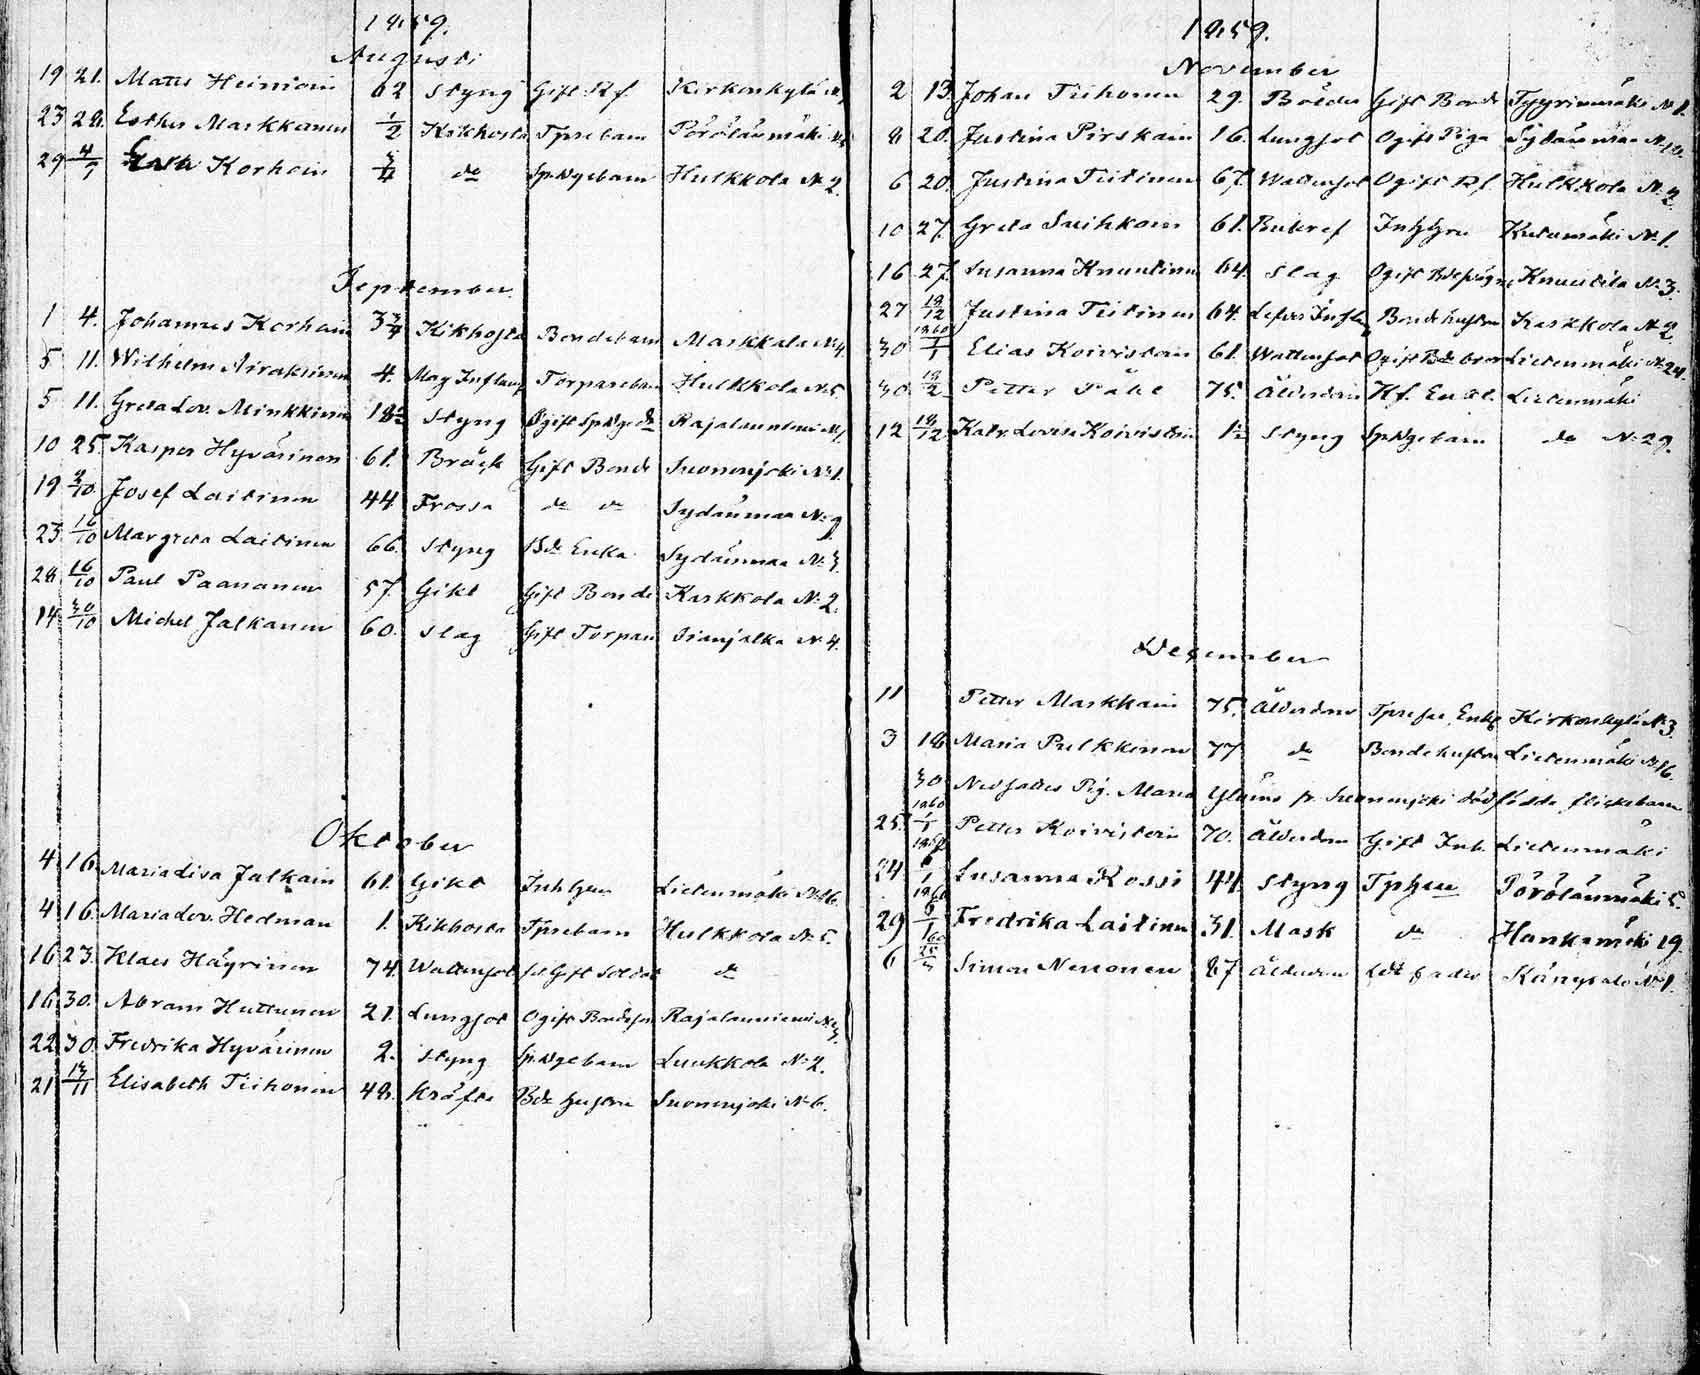 1859.
Augusti
19 21. Matts Heinoin 62 Styng Gift Rf. Kirkonkylä
23 28. Esther Markkanen 1/2 Kikhosta Tprebarn Pörölänmäki
29 4/9 Korhoin 3/4 do Spdgebarn Hulkkola N:2.
September.
1 4. Johannes Korhoin 3 3/4 Kikhosta Bondebarn Markkala N:4.
5 11. Wilhelm Airaksinen 4. Mag Inflam Torparebarn Hulkkola N:5.
5 11. Greta Lov. Minkkinen Styng Rajalanniemi
10 25. Kasper Hyvärinen 61. Bråck Gift Bonde Suonenjoki N:1.
19 2/10. Josef Laitinen 44 Frossa do do Sydänmaa N:9
23 16/10 Margreta Laitinen 66. Styng Bde Enka Sydänmaa N:3.
28 16/10 Paul Paananen 57. Gikt Gift Bonde Karkkola N:2.
14 30/10 Michel Jalkanen 60. Slag Gift Torpare Sianjalka N:4.
Oktober
4 16. Maria Lisa Jalkain 61. Gikt Inhhu Lietenmäki N:16.
4 16. Maria Lov. Hedman 1. Kikhosta Tprebarn Hulkkola N:5.
16 23. Klaes Häyrinen 74. Wattensot Gift Soldat do
16 30. Abram Huttunen 21. Lungsot Ogift Bondeson Rajalanniemi
22 30. Fredrika Hyvärinen 2. Styng Spdgebarn Luukkola N:2.
21 13/11 Elisabeth Tiihonen 48. Kräfta Bde hustru Suonenjoki N:6.
1859.
November
2 13. Johan Tiihonen 29. Gift Bonde Tyyrinmäki N:1.
8 20. Justina Pirskain 16. Lungsot Ogift Piga Sydänmaa N:10.
6 20. Justina Tiitinen 67. Wattensot Ogift Rf Hulkkola N:2.
10 27. Greta Suihkoin 61. Inhhru Kutumäki N:1.
16 27. Susanna Knuutinen 64. Slag Ogift Knuutila N:3.
27 18/12 Justina Tiitinen 64. Lefver Infla Bondehustru Karkkola N:2.
30 1860 1/1 Elias Koivistoin 61. Wattensot Ogift Bde bror Lietenmäki N:24.
30. 18/2 Petter 75. Ålderdom Lietenmäki
12 18/12 Katr. Lovisa Koivistoin 1 1/2 Styng Spdgebarn do N:29.
December
11 Petter Markkain 75. Ålderdom Enkl Kirkonkylä N:3.
3 18 Maria Pulkkinen 77 do Bondehustru Lietenmäki N:16.
30. Nedsattes Pig. Maria fr. Suonenjoki dödfödda flickebarn
25. 1860 1/1 Petter Koivistoin 70. Ålderdom Gift Inh. Lietenmäki
24 1/1 Susanna Rossi 44. Styng Tphru Pörölänmäki 5.
29 1860 6/1 Fredrika Laitinen 31. Mask do Hankamäki 19.
6 60 25/3 Simon Nenonen 87 Ålderdom fader N:1.